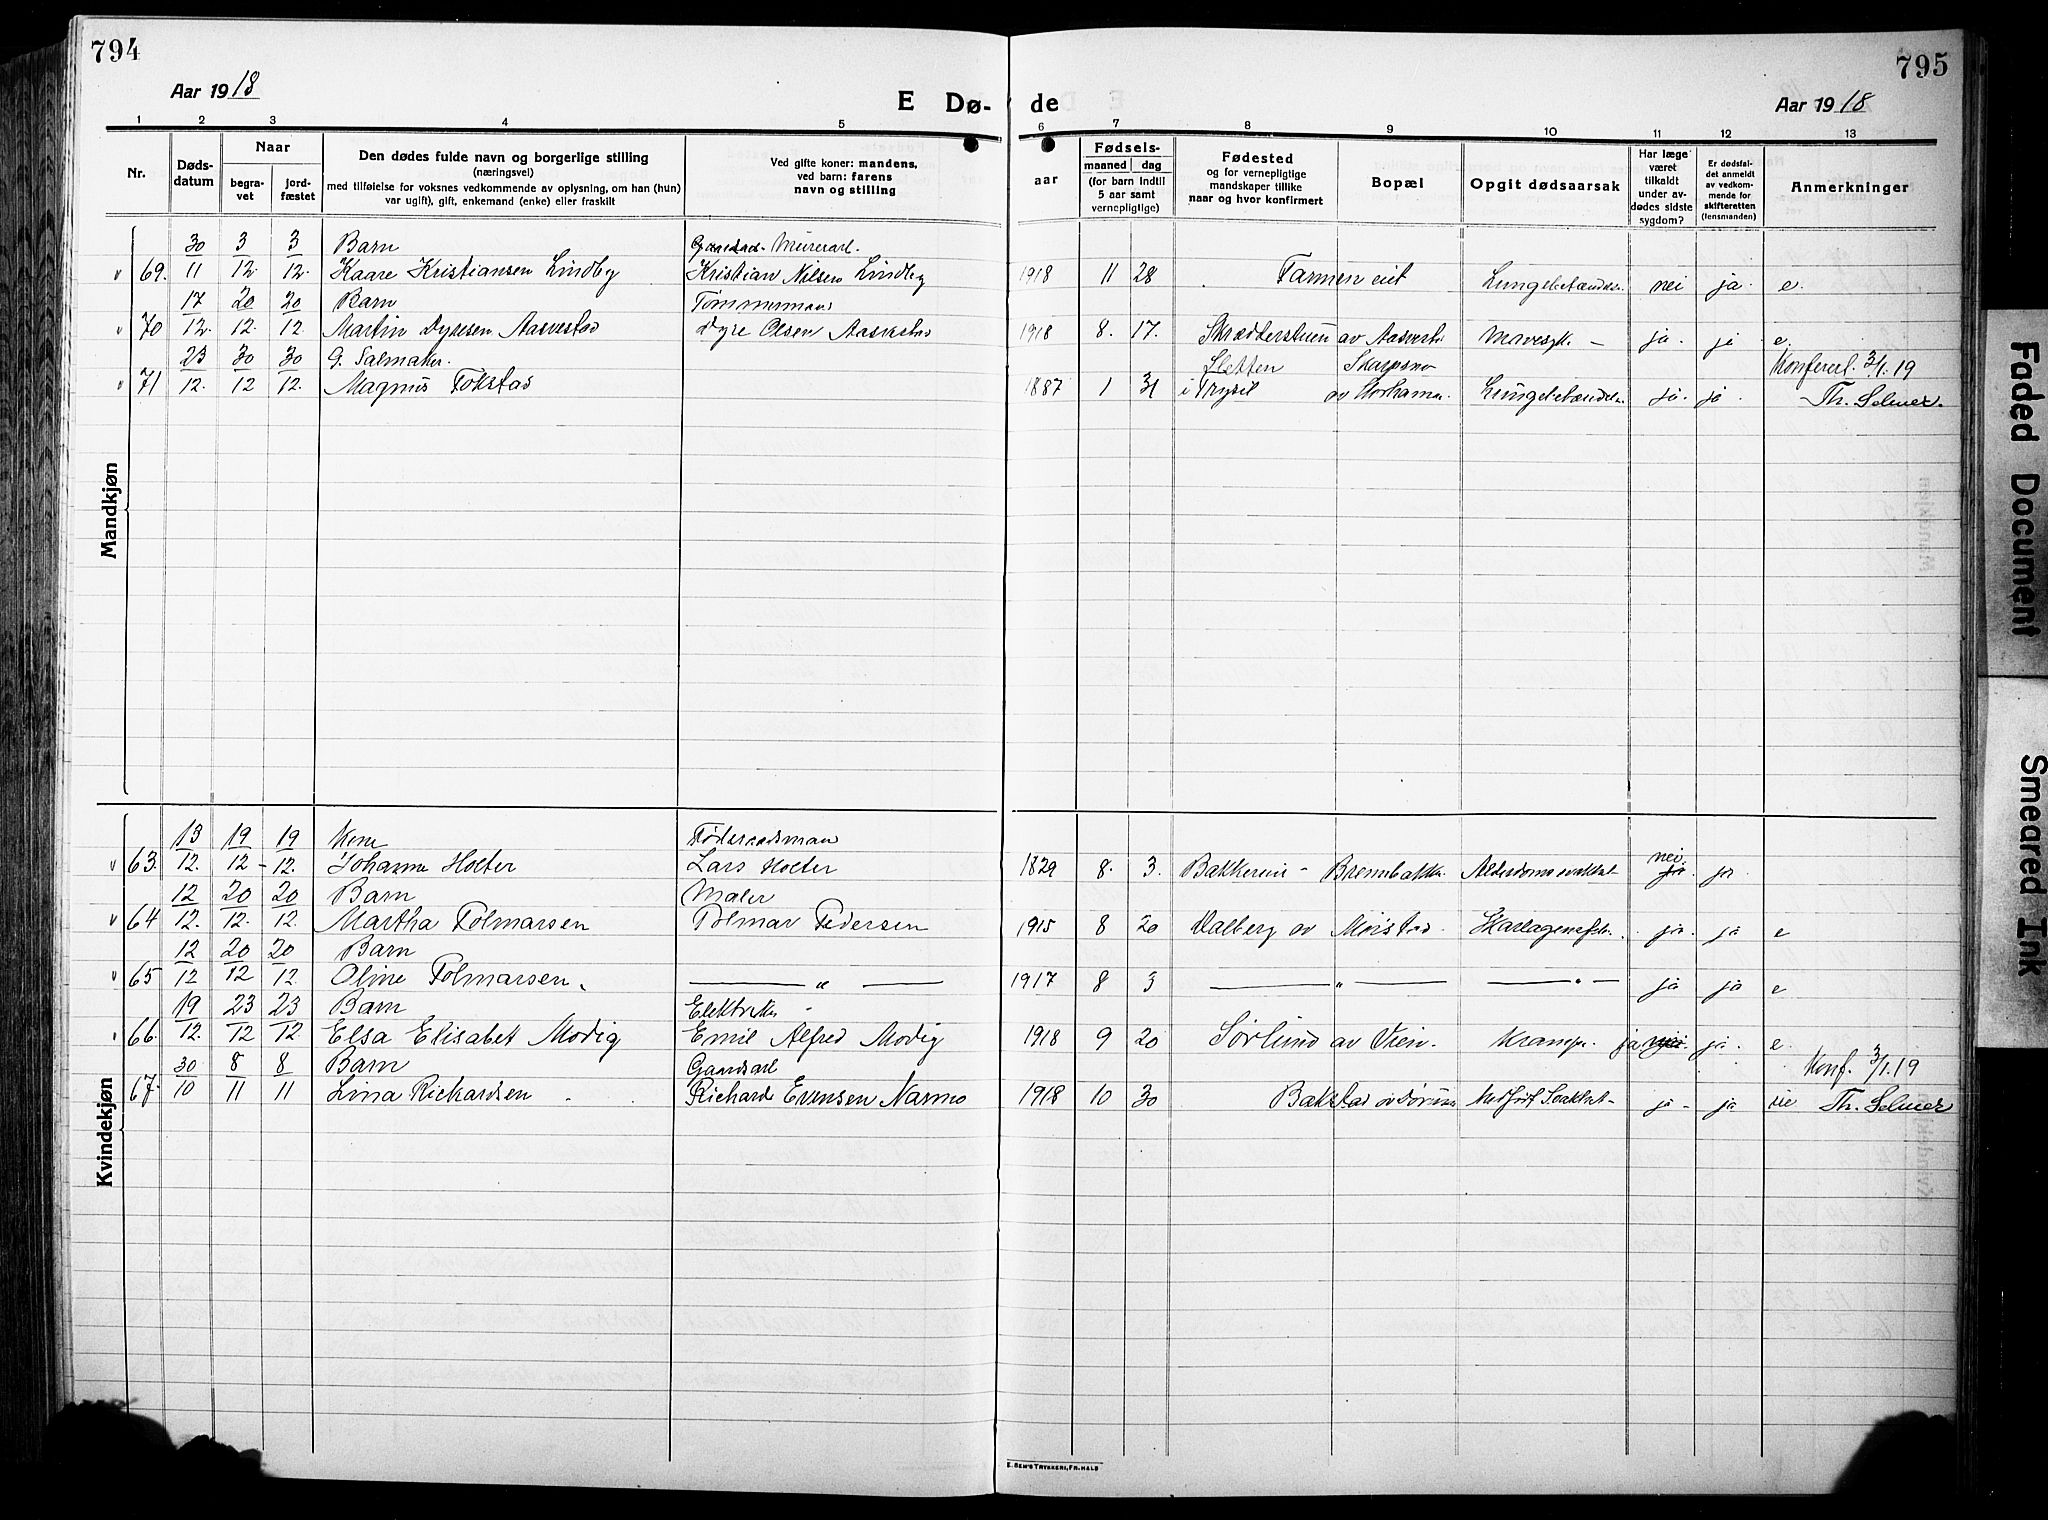 794
795
Aar 1918
E Dø-
de
Aar 1918
1 2 3 4 5 6 7 8 9 10 11 12 13
Nr.
Døds-
datum
Naar
begra-
vet
jord-
fæstet
Den dødes fulde navn og borgerlige stilling
(næringsvei)
med tilføielse for voksnes vedkommende av oplysning, om han (hun)
var ugift), gift, enkemand (enke) eller fraskilt
Ved gifte koner: mandens,
ved barn: farens
navn og stilling
aar
Fødsels-
maaned
dag
(for barn indtil
5 aar samt
vernepligtige)
Fødested
og for vernepligtige
mandskaper tillike
naar og hvor konfirmert
Bopæl
Opgit dødsaarsak
Har læge
været
tilkaldt
under av-
dødes sidste
sygdom?
Er dødsfal-
det anmeldt
av vedkom-
mende for
skifteretten
(lensmanden)
Anmerkninger
Mandkjøn
30 3 3 Barn Murerarb.
69. 11 12. 12. Kaare Kristiansen Lindby Kristian Nilsen Lindby 1918 11 28 Farmen eiet nei ja e.
17 20 20 Barn Tømmermand
70 12. 12. 12. Martin Dyresen Aasvestad Dyre Olsen Aasvestad 1918 8. 17. av Mavesyk. ja. ja e.
23 30 30 G. Salmaker. Sletten Skarpsno 3/1.19
71 12. 12 12. Magnus Tokstad 1887 1 31 i Trysil av ja. ja. Th. Selmer.
Kvindekjøn
13 19 19 Kone Føderaadsmand
63. 12. 12 - 12. Johanne Holter Lars Holter 1829 8. 3. nei. ja
12 20 20 Barn Maler
64 12. 12. 12. Martha Tolmarsen Tolmar Pedersen 1915 8 20 Valberg av Moistad. ja. ja e
12 20 20 Barn
65 12 12 12 Oline Tolmarsen. — " — 1917 8 3 — " — — " — ja ja e
19 23 23 Barn
66. 12. 12 12 Elsa Elisabet Modig Emil Alfred Modig 1918 9 20 Sørlund av Vien. Krampe. ja ja. e.
30 8 8 Barn Gaardsarb Konf. 3/1.19
67. 10 11 11 Lina Richardsen Richard Evensen Narmo 1918 10 30 Bakstad av ja - ja Th. Selmer
E. SEM'S TRYKKERI, FR.HALD
Faded Document
Smeared Ink